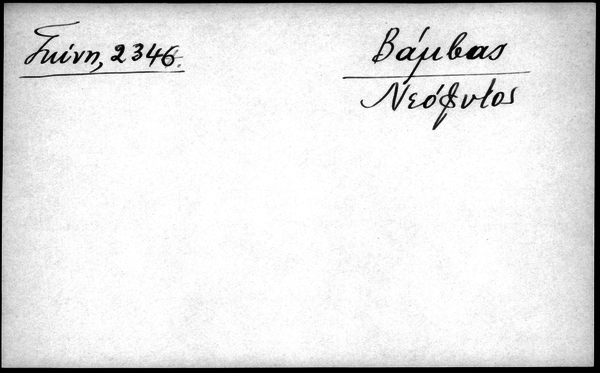 Γκίνη, 2346.
Βάμβας
Νεόφυτος